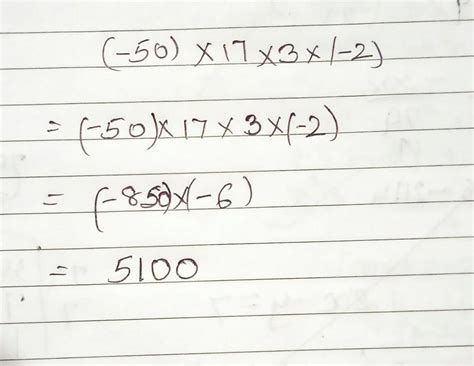 (-50) × 17 × 3 × (-2)
= (-50) × 17 × 3 × (-2)
= (-850) × (-6)
= 5100